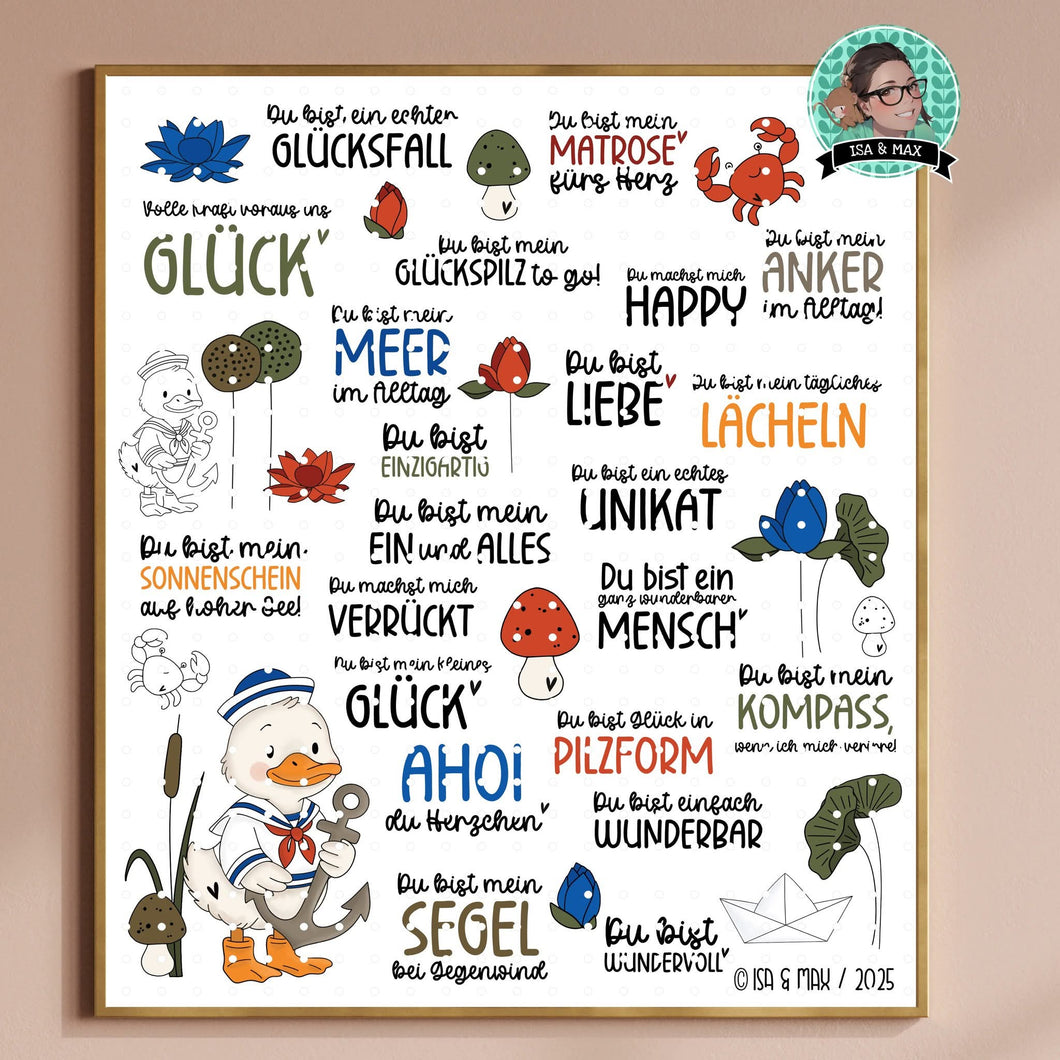 ISA & MAX
Du bist ein echter
GLÜCKSFALL
Du bist mein
MATROSE
fürs Herz
Volle Kraft voraus ins
GLÜCK
Du bist mein
GLÜCKSPILZ to go!
Du machst mich
HAPPY
Du bist mein
ANKER
im Alltag!
Du bist mein
MEER
im Alltag
Du bist
LIEBE
Du bist mein tägliches
LÄCHELN
Du bist
EINZIGARTIG
Du bist ein echtes
UNIKAT
Du bist mein
EIN und ALLES
Du bist mein
SONNENSCHEIN
auf hoher See!
Du machst mich
VERRÜCKT
Du bist ein
ganz wunderbarer
MENSCH
Du bist mein kleines
GLÜCK
Du bist mein
KOMPASS,
wenn ich mich verirre!
Du bist Glück in
PILZFORM
AHOI
du Herzchen
Du bist einfach
WUNDERBAR
Du bist mein
SEGEL
bei Gegenwind
Du bist
WUNDERVOLL
© ISA & MAX / 2025